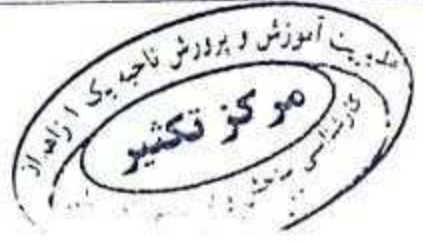 مدیریت آموزش و پرورش ناحیه یک زاهدان
مرکز تکثیر
کارشناسی سنجش